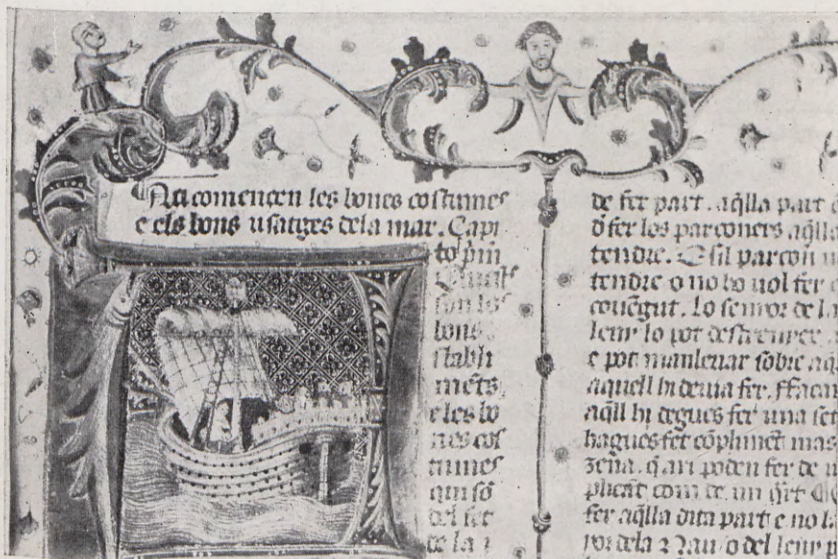 Aci comencen les bones costumes
e els bons usatges dela mar. Capi
to pm̄
Quests
son los
bons
stabli
mēts,
e les bo
nes cos
tumes
qui só
del fet
de la
de fer part. aq̄lla part
d̄ fer los parconers aq̄lla
tendre. E sil parcon
tendre o no ho uol fer
couēgut. lo senyor de la
leny lo pot destrenyer
e pot manleuar sobre
aquell hi deuia fer. Ffaca
aq̄ll hi degues fer una
hagues fet cōplimēt mas
poden fer de
plicāt com de un
fer aq̄lla dita part e no la
yor dela Nau o del leny